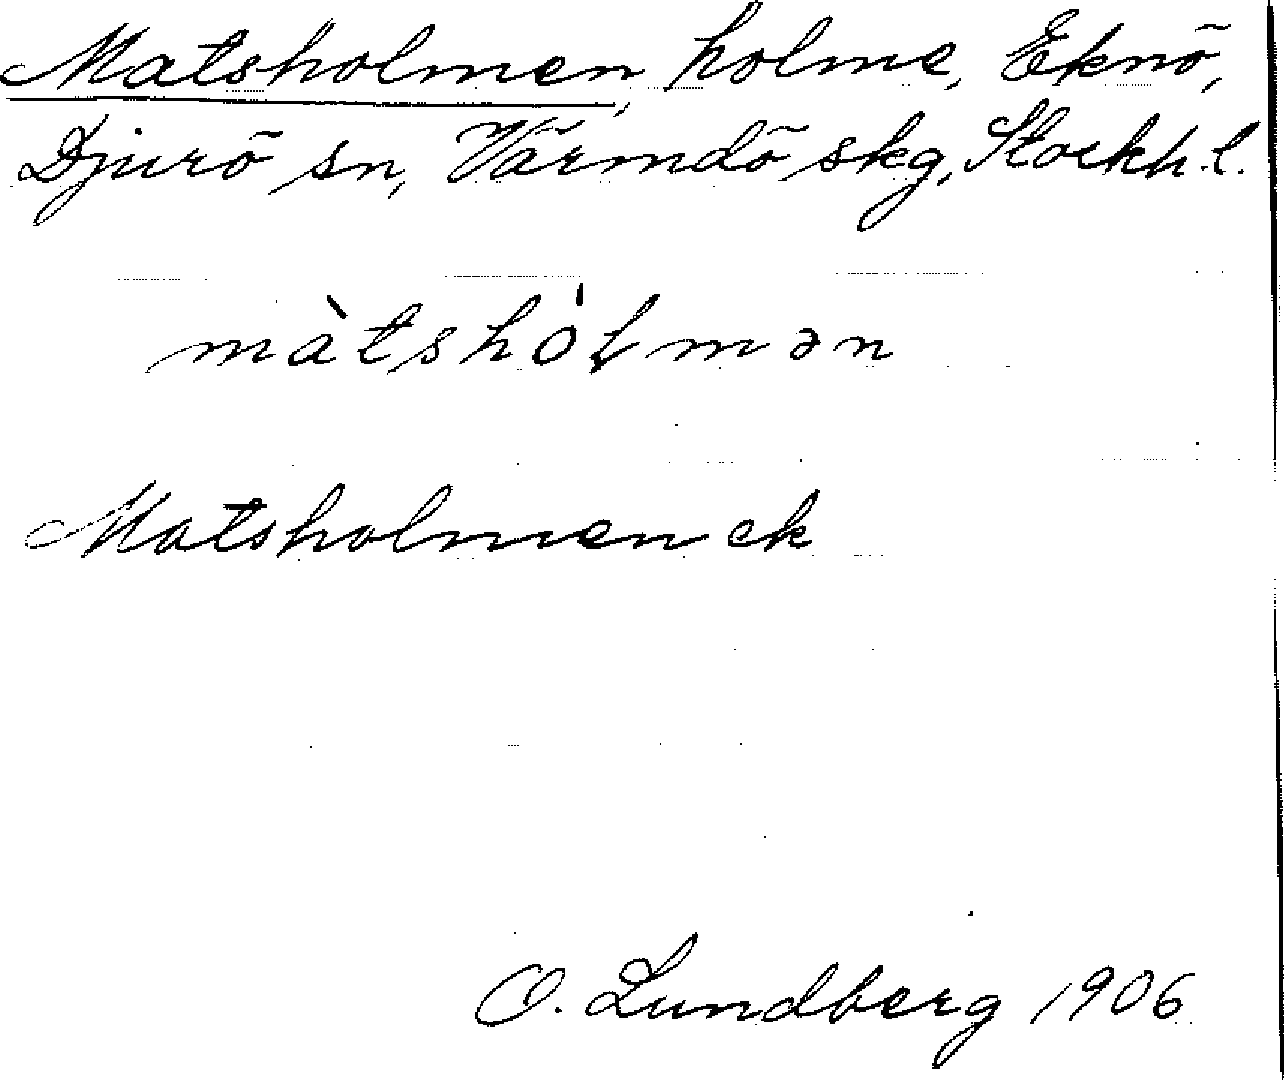 Matsholmen, holme, Eknö,
Djurö sn, Värmdö skg, Stockh. l.
màtshòlmən
Matsholmen ek
O. Lundberg 1906